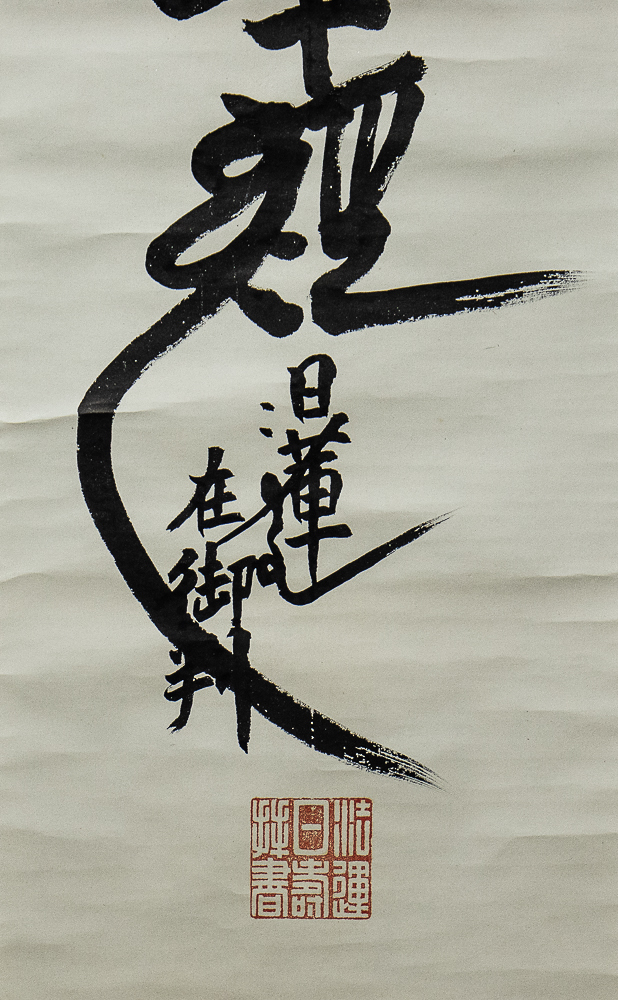 經
日蓮
在御判
法運
日壽
拜書